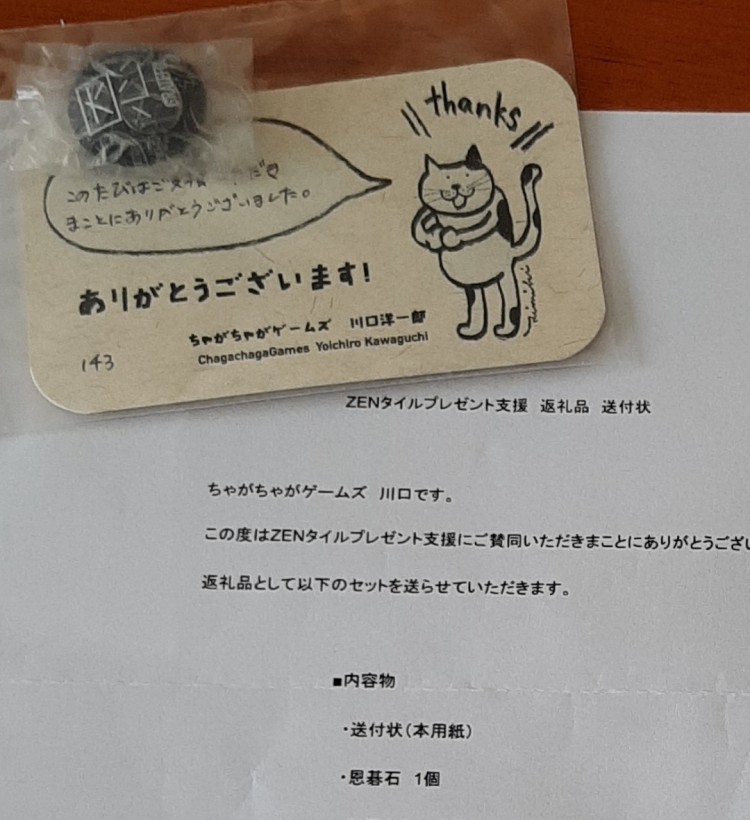 thanks
このたびはご
まことにありがとうございました。
ありがとうございます!
ちゃがちゃがゲームズ 川口洋一郎
ChagachagaGames Yoichiro Kawaguchi
143
ZENタイルプレゼント支援 返礼品 送付状
ちゃがちゃがゲームズ 川口です。
この度はZENタイルプレゼント支援にご賛同いただきまことにありがとうござい
返礼品として以下のセットを送らせていただきます。
■内容物
・送付状(本用紙)
・恩碁石 1個